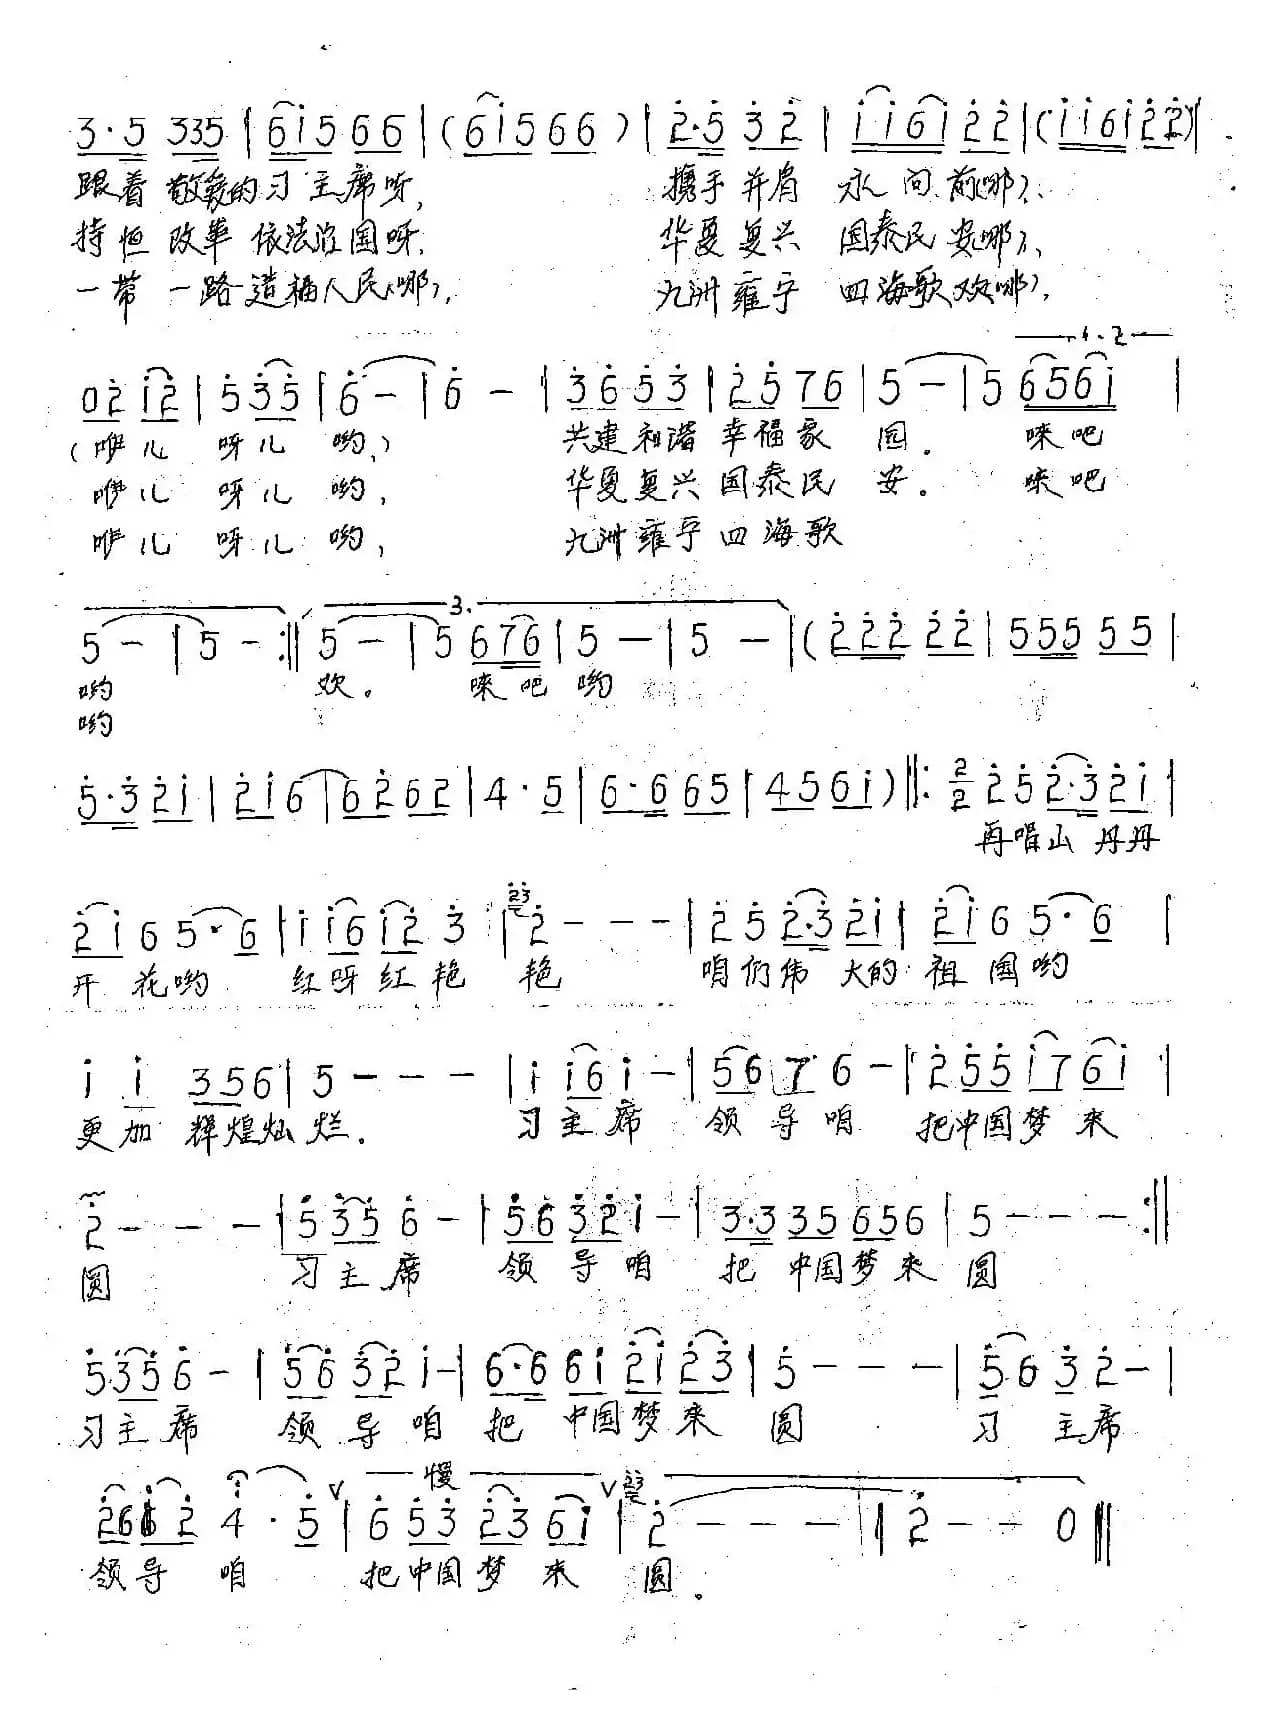 3·5 335 | 6i5 66 | (6i5 66) | 2·5 3 2 | i i 6 i 2 2 | (i i 6 i 2 2) |
跟着 敬爱的习 主席呀, 携手并肩 永 向 前(哪),
持恒 改革 依法治国呀, 华夏复兴 国泰民 安(哪),
一带 一路造福人民(哪), 九洲雍宁 四海歌欢(哪),
1.2
02 i2 | 5 35 | 6 - | 6 - | 36 53 | 25 76 | 5 - | 5 656i |
(咿儿 呀儿 哟,) 共建和谐 幸福家 园. 唻吧
咿儿 呀儿 哟, 华夏复兴 国泰民 安. 唻吧
咿儿 呀儿 哟, 九洲雍宁 四海歌
3.
5 - | 5 - :|| 5 - | 5 676 | 5 - | 5 - | (222 22 | 555 55 |
哟 欢. 唻吧 哟
哟
5·3 2i | 2i6 | 6262 | 4·5 | 6·6 65 | 456i) ||: 2/2 2 5 2·3 2i |
再唱山 丹丹
2i 6 5·6 | i i6 i2 3 | 23 2 - - - | 2 5 2·3 2i | 2i 6 5·6 |
开 花哟 红呀红艳 艳 咱们伟 大的 祖 国哟
i i 356 | 5 - - - | i i6 i - | 56 7 6 - | 2 5 5 i7 6i |
更加 辉煌灿烂. 习主席 领导咱 把中国梦来
2 - - - | 5 35 6 - | 56 32 i - | 3·3 35 656 | 5 - - - :||
圆 习主席 领导咱 把 中国梦来 圆
5 35 6 - | 56 32 i - | 6·6 6i 2i 23 | 5 - - - | 56 3 2 - |
习主席 领导咱 把 中国梦来 圆 习 主席
慢
26i2 4·5 V | 6 53 23 6i V | 23 2 - - - | 2 - - 0 ||
领导 咱 把中国梦 来 圆.